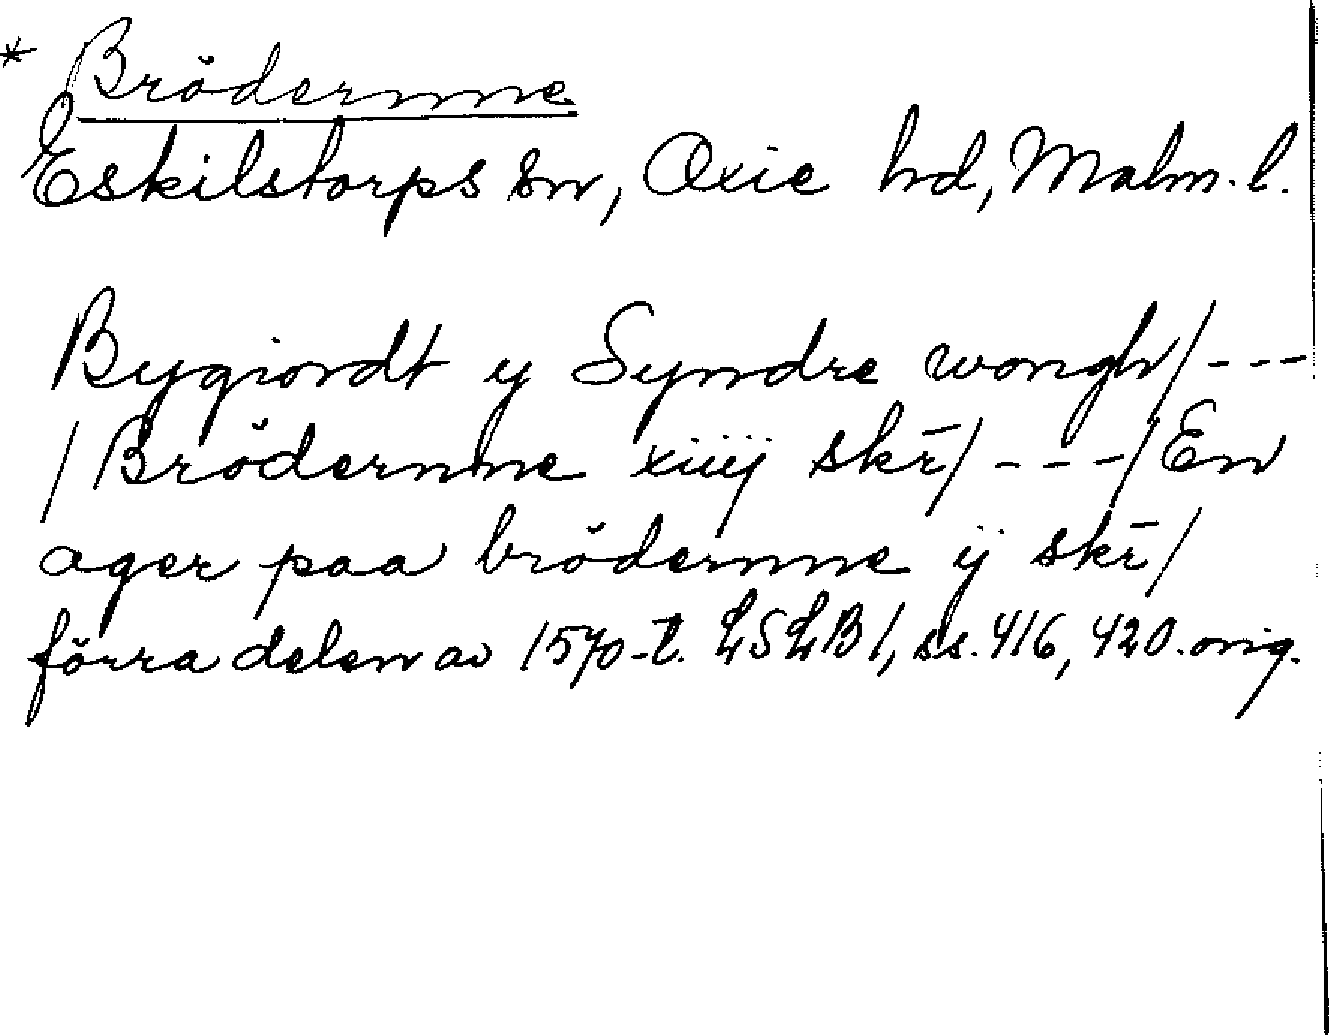 * Brödernne
Eskilstorps sn, Oxie hd, Malm. l.
Bygiordt y Syndre wongh/---
/Brödernne xiiij skr̄/---/En
ager paa brödernne ij skr̄/
förra delen av 1570-t. LSLB 1, ss. 416, 420. orig.